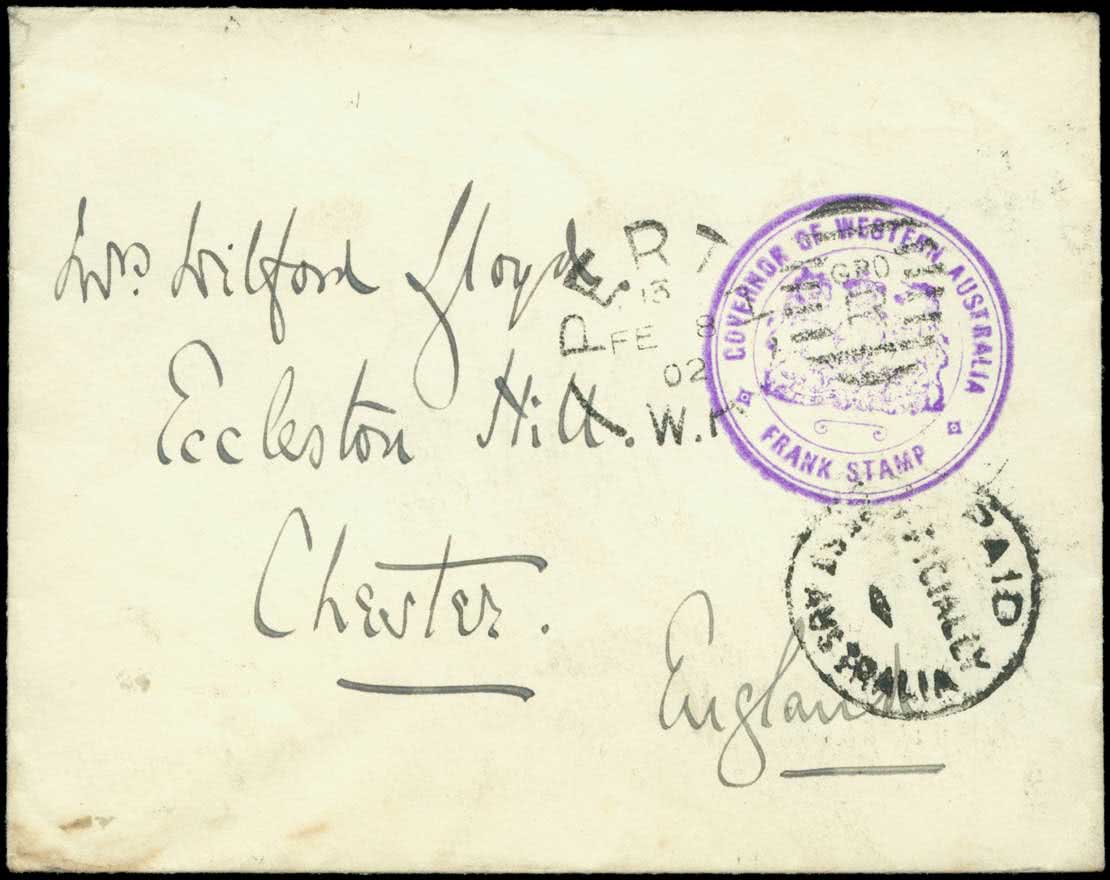 Mrs Wilford Lloyd
Eccleston Hill.
Chester.
England
PERT
13
FE 8
02
W.
GOVERNOR OF WESTERN AUSTRALIA
FRANK STAMP
GPO
PAID
AUSTRALIA